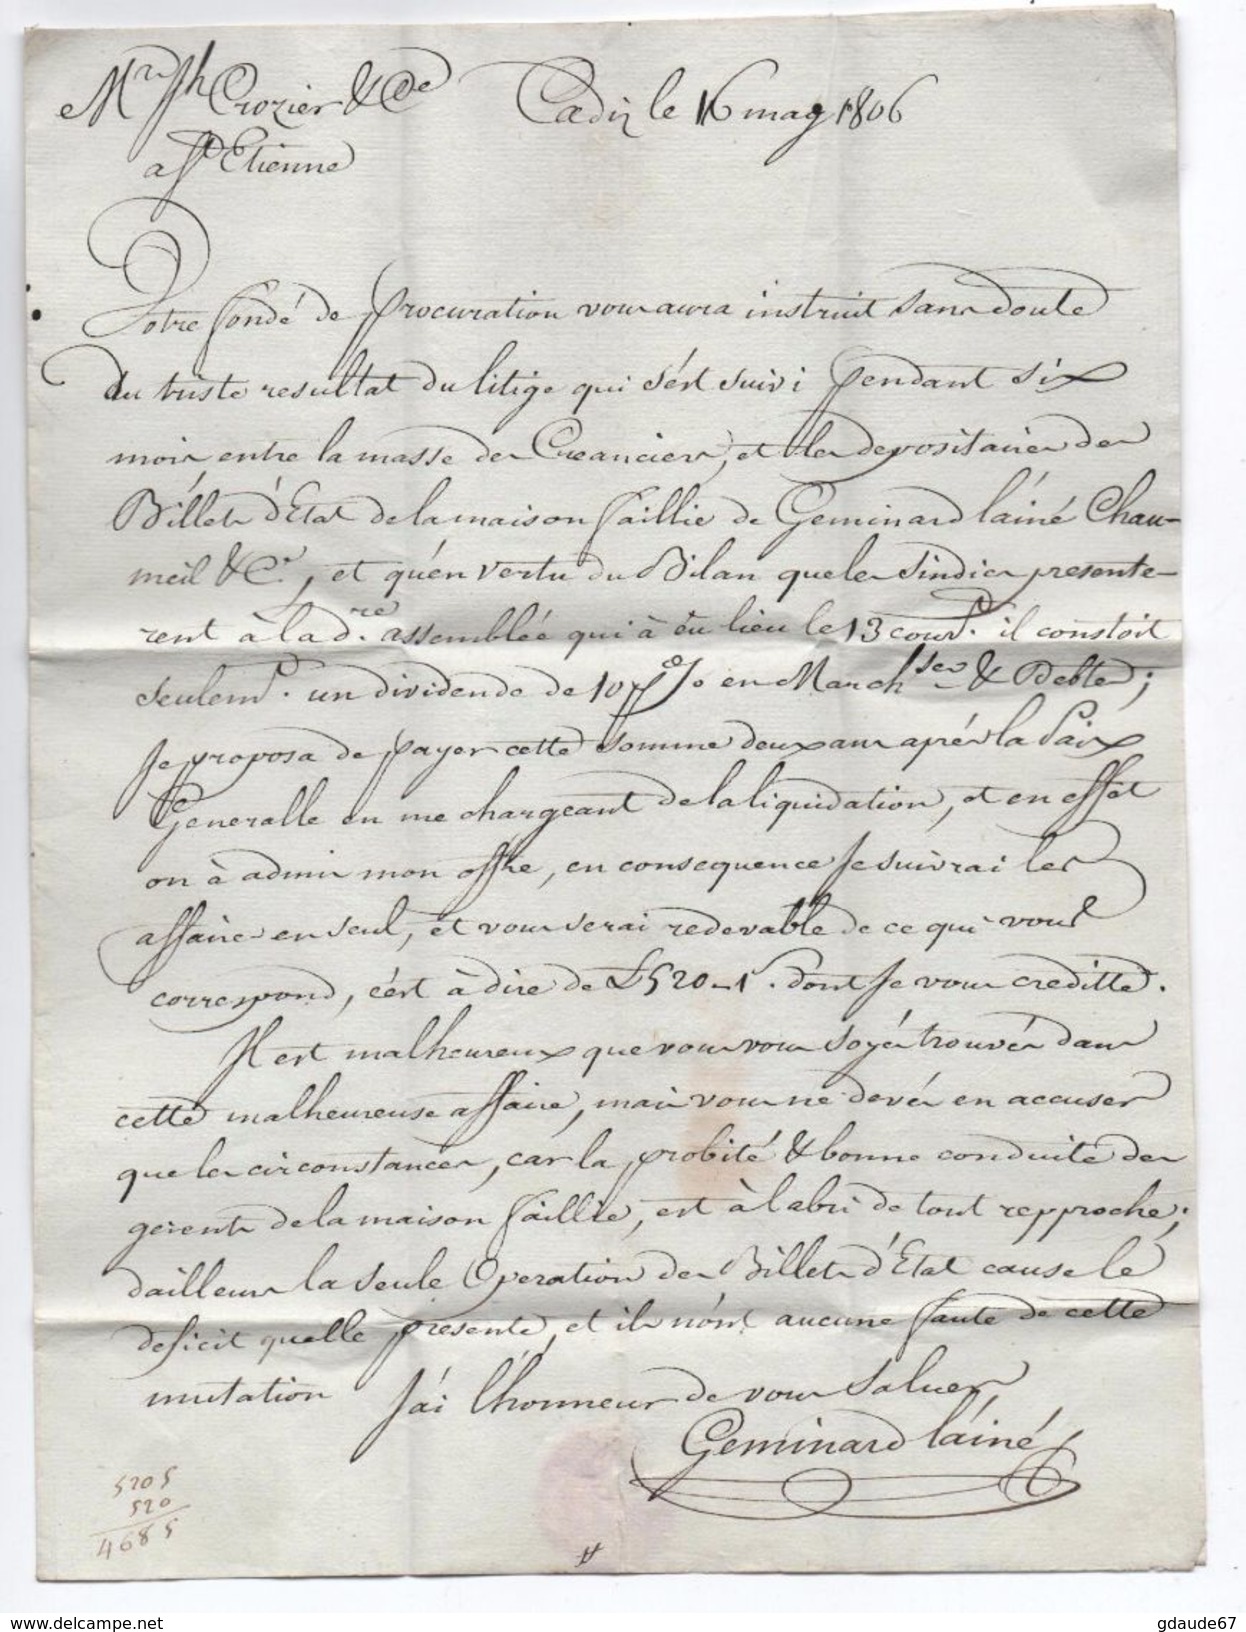 Mrs Jh Crozier & Cie
Cadiz le 16 may 1806
a St Etienne
Votre fondé de procuration vous aura instruit sans doute
du triste resultat du litige qui s'est suivi pendant six
mois entre la masse des Creanciers, et les depositaires des
Billets d'Etat de la maison faillie de Geminard láiné Chau-
meil & Ce., et qu'en vertu du Bilan que les Sindics presente-
rent à la d.re assemblée qui à eu lieu le 13 cour.t il constoit
seulem.t un dividende de 10 p% en March.ses & Debtes;
Je proposa de payer cette somme deux ans aprés la Paix
Generalle en me chargeant de la liquidation, et en effet
on à admis mon offre, en consequence Je suivrai les
affaires en seul, et vous serai redevable de ce qui vous
correspond, c'est à dire de £520-1s. dont Je vous creditte.
Il est malheureux que vous vous soyés trouvés dans
cette malheureuse affaire, mais vous ne devés en accuser
que les circonstances, car la probité & bonne conduite des
gerents de la maison faillie, est à l'abri de tout repproche;
dailleurs la seule Operation des Billets d'Etat cause lé
deficit quelle presente, et ils n'ont aucune faute de cette
mutation J'ái l'honneur de vous saluer
Geminard láiné
5205
520
4685
www.delcampe.net
gdaude67